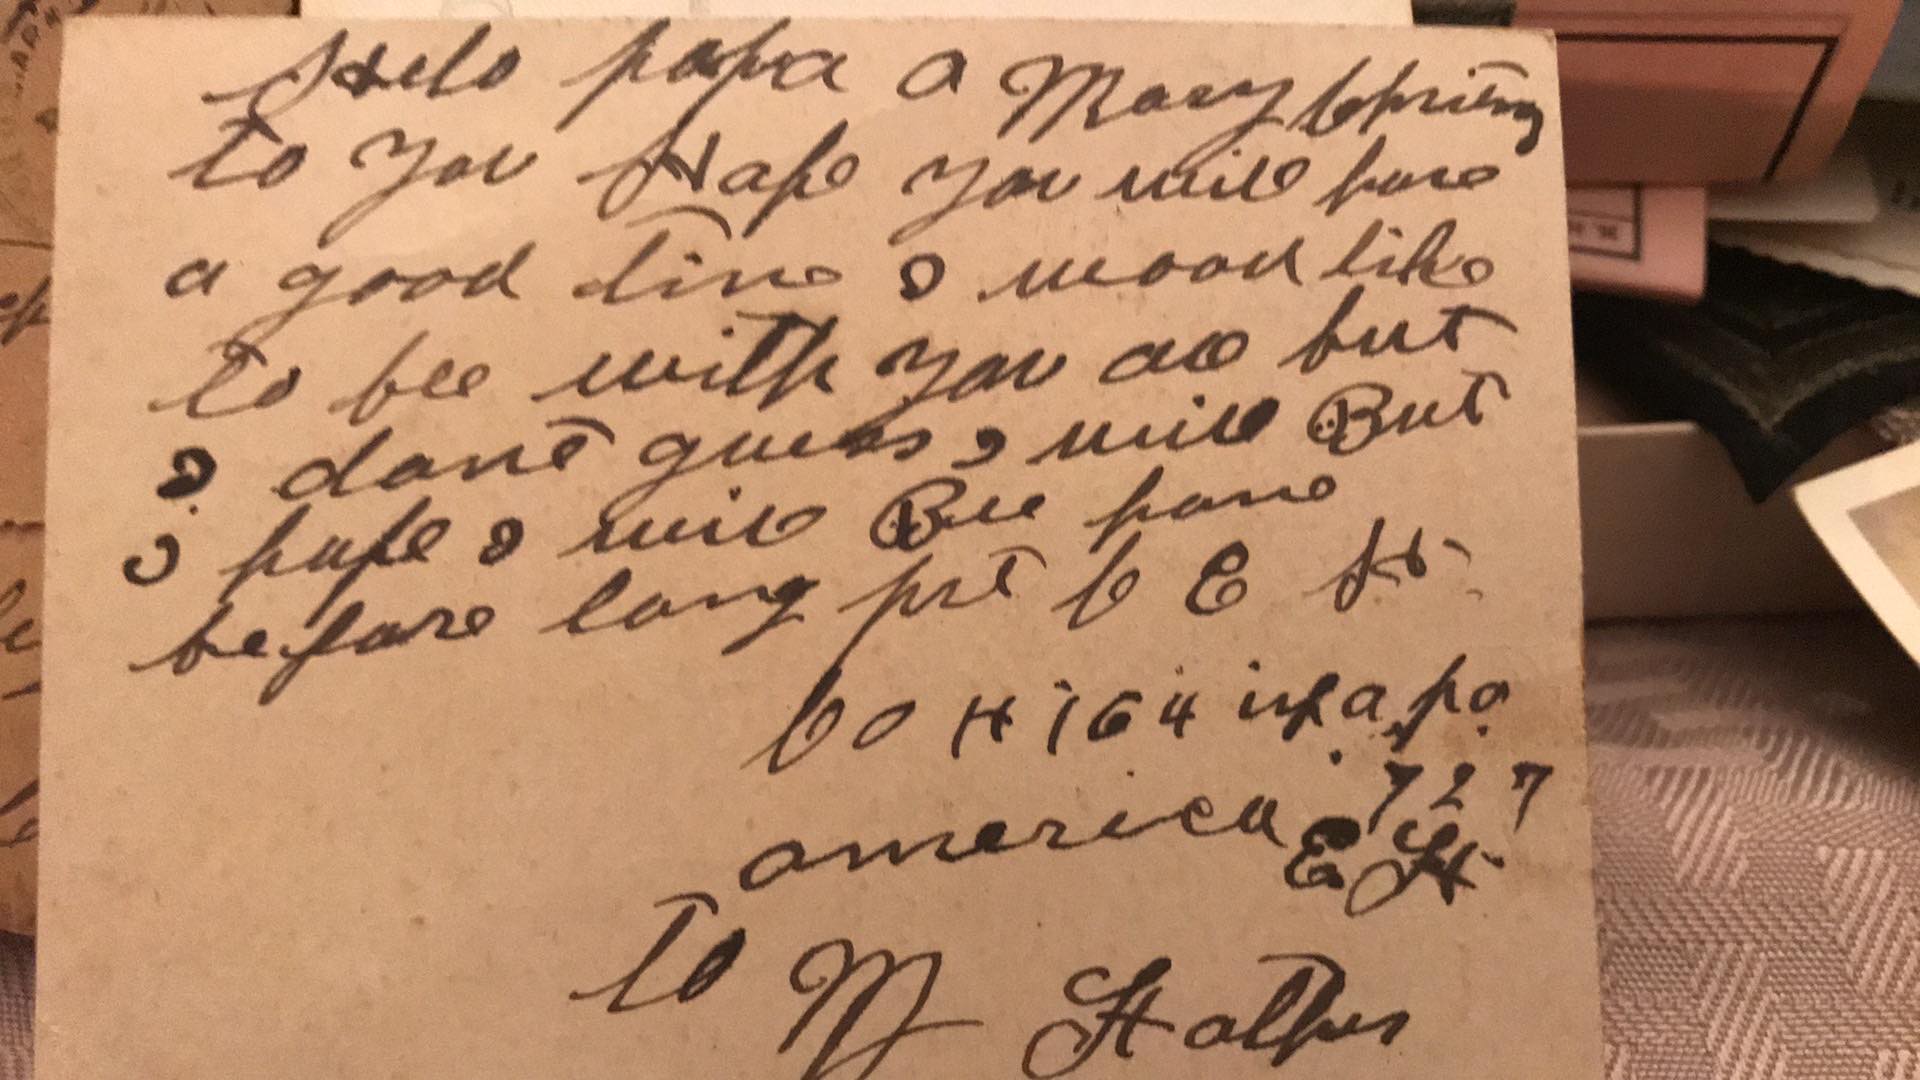 Helo papa a Mary Chrismy
to you Hope you will have
a good time I wood like
to bee with you all but
I dont guess I will But
I hope I will Bee home
before long pvt C E H
Co H 164 inf a.p.o.
america 727
E H
To My Father